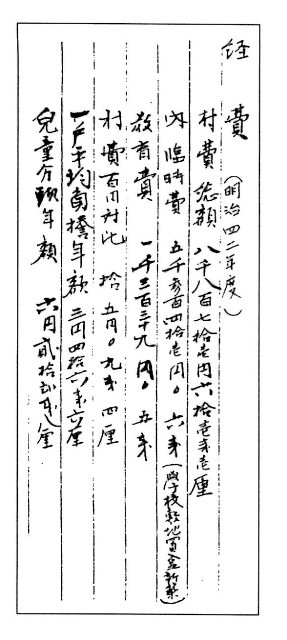 経費(明治四二年度)
村費総額 八千八百七拾壱円六拾壱銭壱厘
内臨時費 五千参百四拾壱円〇六銭(学校敷地買金新築)
教育費 一千三百三十九円〇五銭
村費百円対比 拾五円〇九銭四厘
一戸平均負担年額 三円四拾六銭六厘
児童分頭年額 六円弐拾弐銭八厘